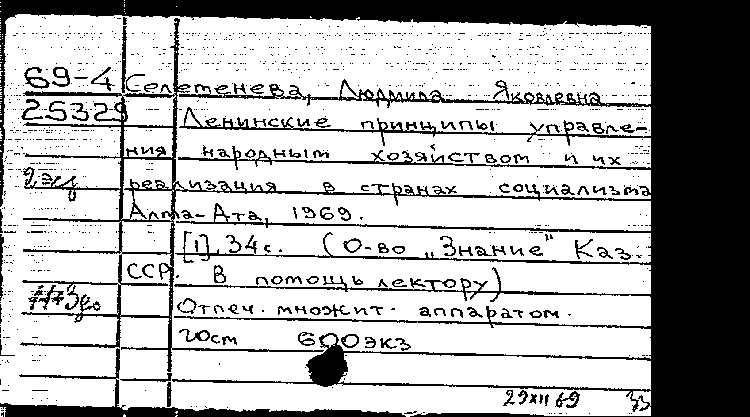 69-4 Селетенева, Людмила Яковлевна
25329 Ленинские принципы управле-
ния народным хозяйством и их
2 экз реализация в странах социализма
Алма-Ата, 1969.
[1], 34с. (О-во „Знание" Каз.
ССР. В помощь лектору)
Отпеч. множит. аппаратом.
20см 600экз
29 XII 69 33